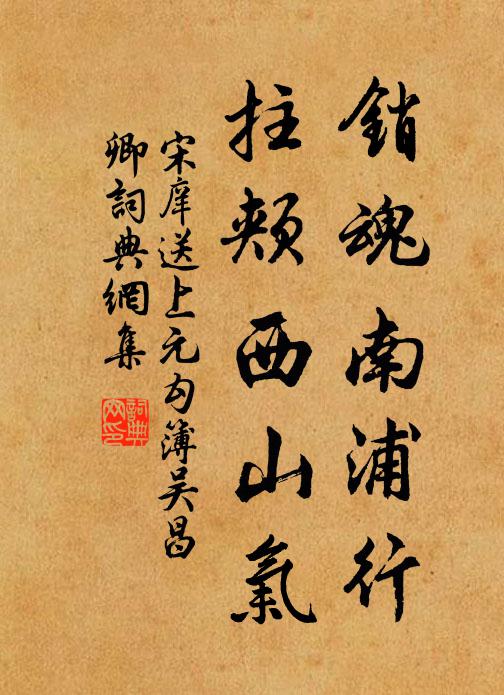 銷魂南浦行
拄頰西山氣
宋庠送上元勾簿吳昌
卿詞典網集
詞典
網印